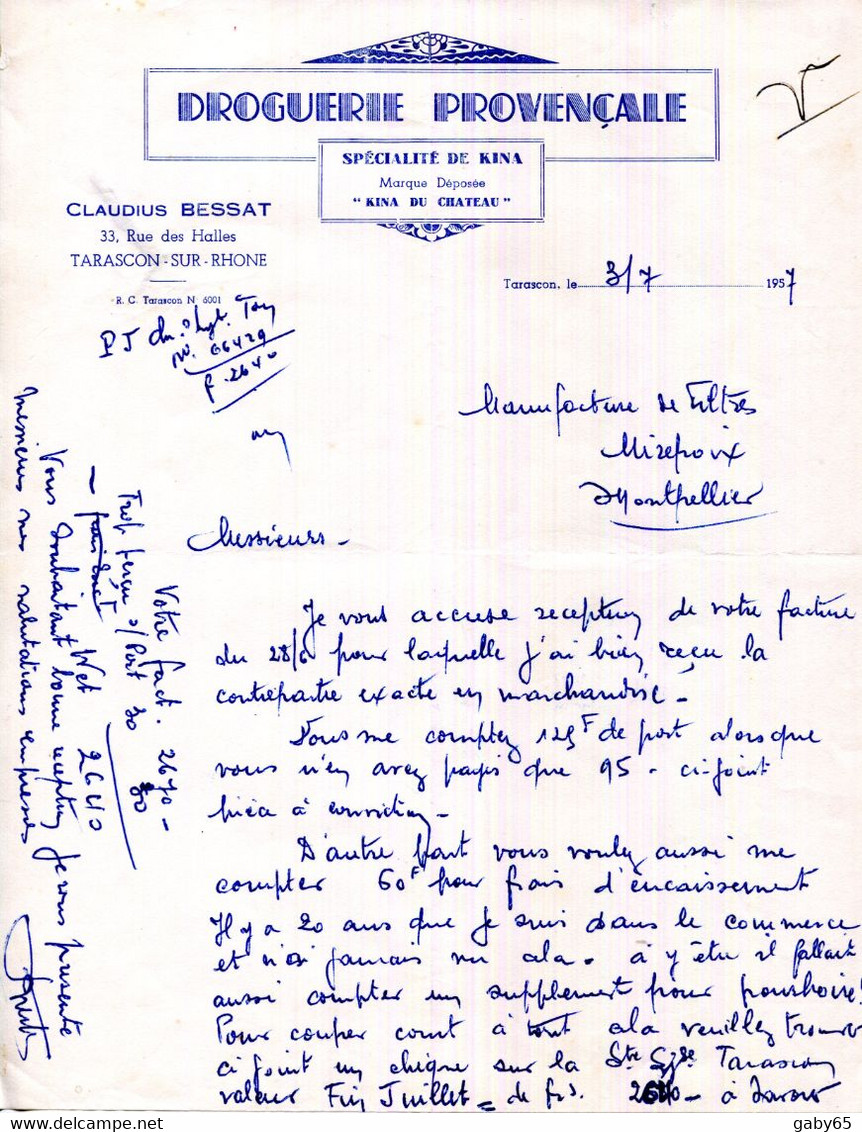 DROGUERIE PROVENÇALE
SPÉCIALITÉ DE KINA
Marque Déposée
" KINA DU CHATEAU "
CLAUDIUS BESSAT
33, Rue des Halles
TARASCON-SUR-RHONE
R. C. Tarascon N° 6001
Tarascon, le 3/7 1957
PJ ch.
N° 66429
F. 2640
Manufacture de Filtres
Mirepoix
Montpellier
Messieurs -
Je vous accuse reception de votre facture
du 28/6 pour laquelle j'ai bien reçu la
contrepartie exacte en marchandise -
Vous me comptez 125F de port alors que
vous n'en avez payés que 95 - ci-joint
pièce à conviction
D'autre part vous voulez aussi me
compter 60F pour frais d'encaissement
Il y a 20 ans que je suis dans le commerce
et n'ai jamais vu cela - à y être il fallait
aussi compter un supplément pour pourboire!
Pour couper court à tout cela veuillez trouver
ci joint un chèque sur la Sté Gle Tarascon
valeur Fin Juillet = de frs. 2640 - à savoir
Votre fact. 2670 -
Trop perçu s/Port 30 30
Net 2640
Vous souhaitant bonne reception je vous présente
Messieurs mes salutations empressées
gaby65